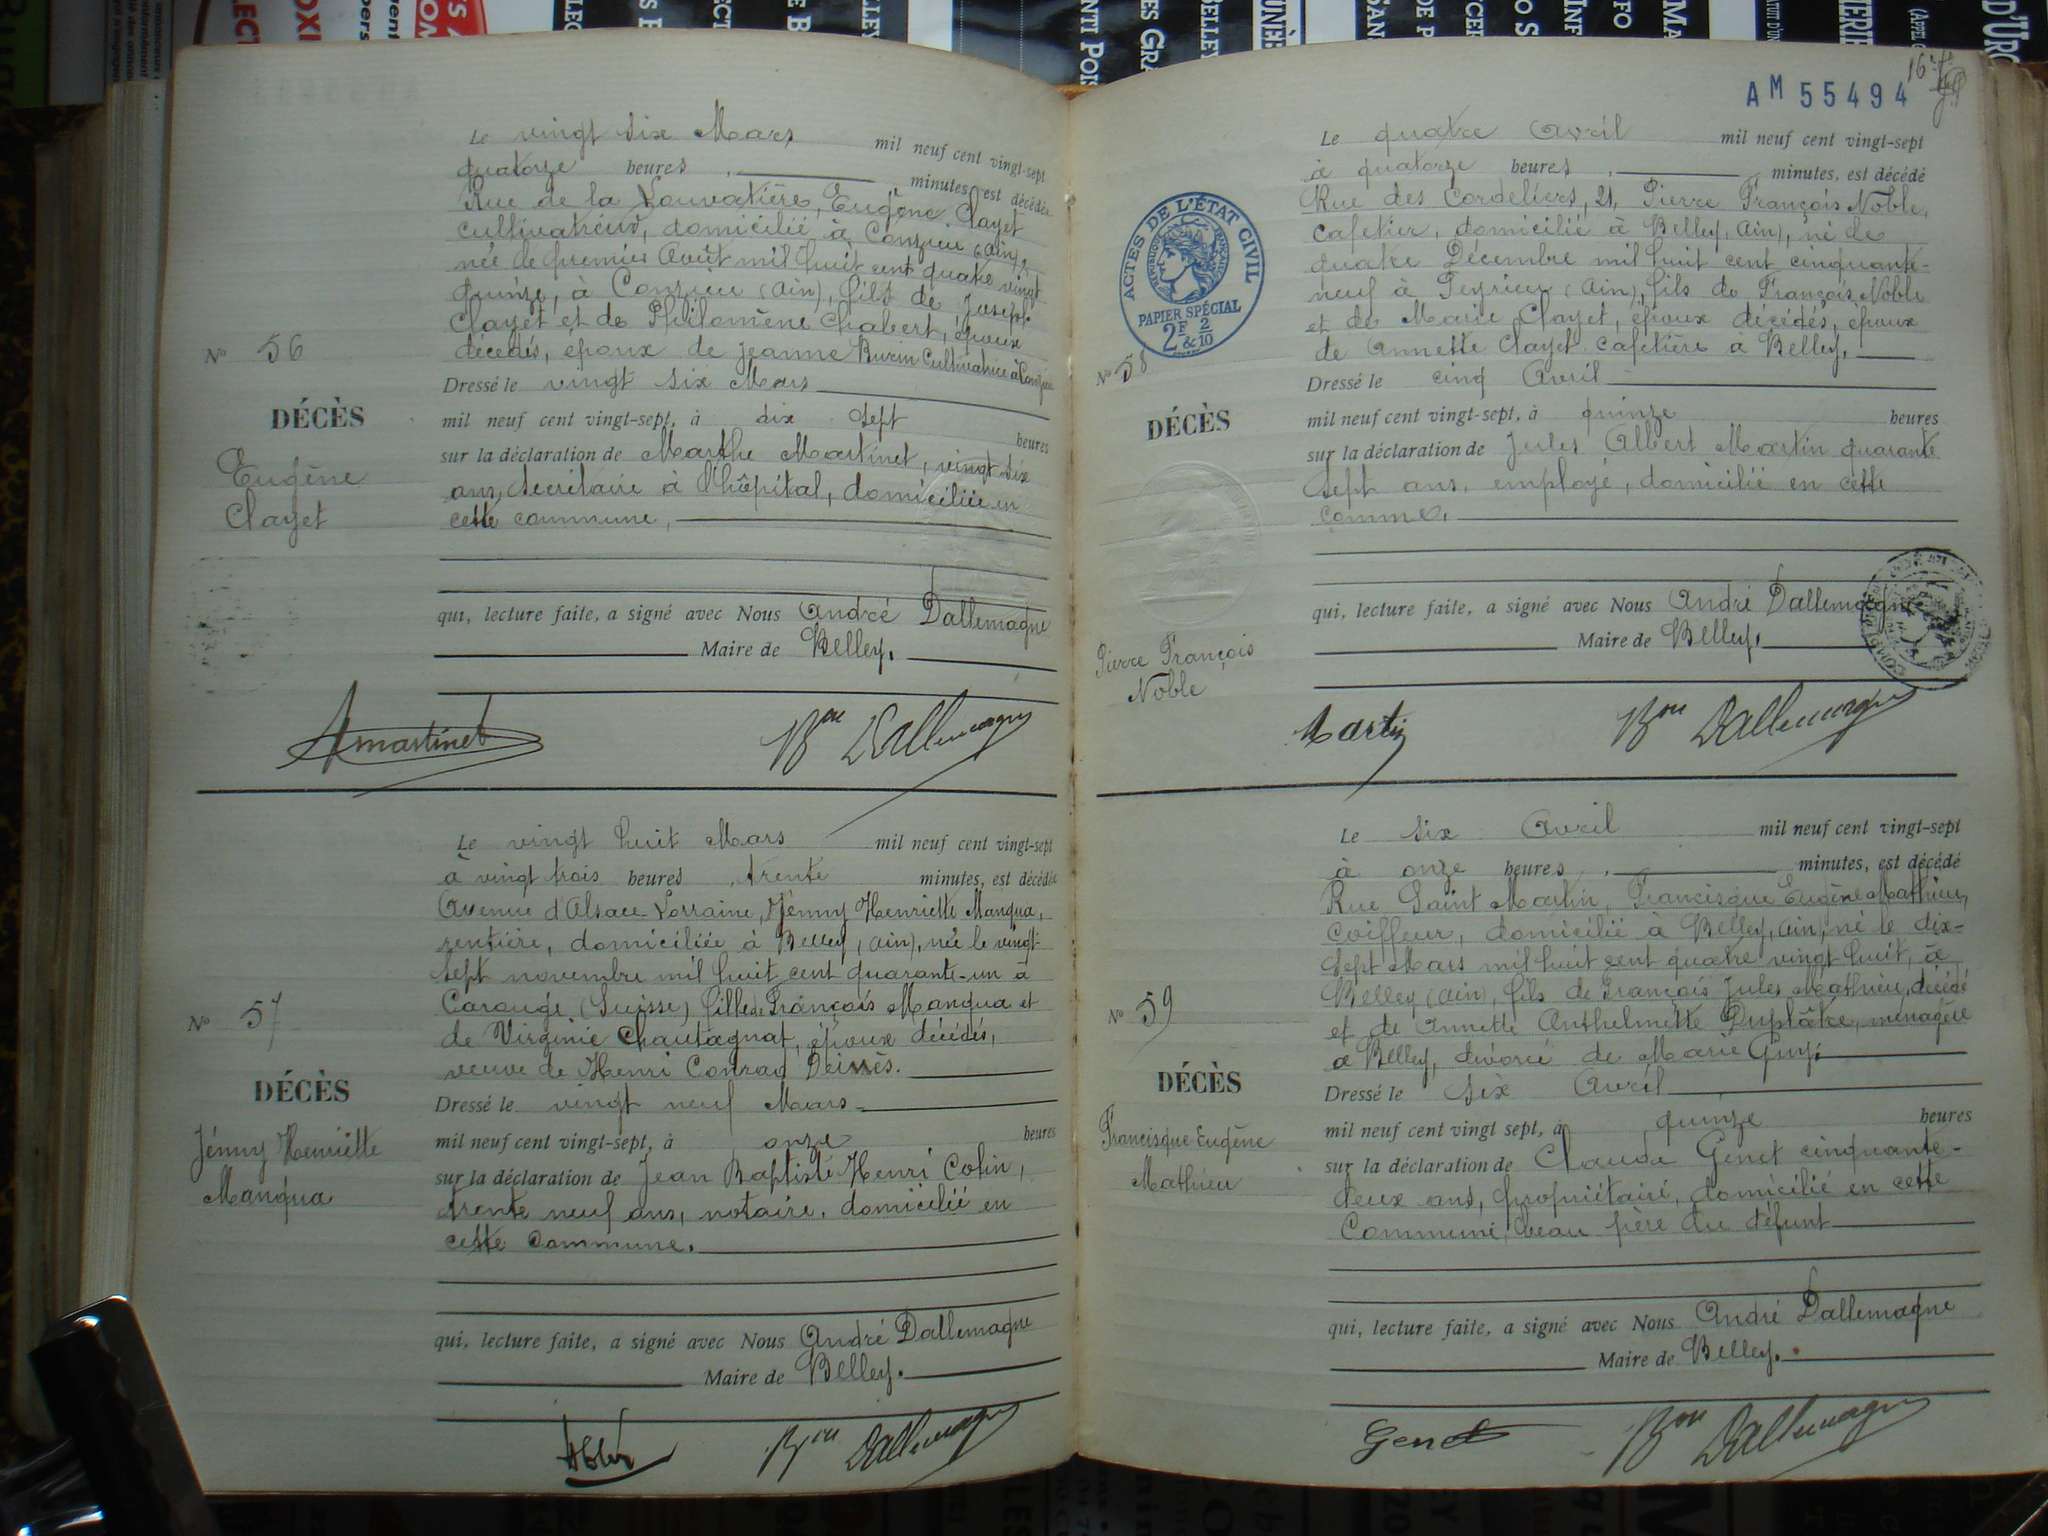 Le vingt six Mars mil neuf cent vingt-sept
quatorze heures, minutes, est décédé
Rue de la Louvatière, Eugène Clayet
cultivateur, domicilié à Conzieu (Ain),
né le premier Août mil huit cent quatre vingt
quinze, à Conzieu (Ain), fils de Joseph
Clayet et de Philomène Chabert, époux
décédés, époux de Jeanne Burin Cultivatrice à Conzieu
Nº 56
Dressé le vingt six Mars
DÉCÈS
mil neuf cent vingt-sept, à dix sept heures
Eugène
Clayet
sur la déclaration de Marthe Martinet, vingt six
ans, Secrétaire à l'hôpital, domiciliée en
cette commune,
qui, lecture faite, a signé avec Nous André Dallemagne
Maire de Belley.
Amartinet Bon Dallemagne
Le vingt huit Mars mil neuf cent vingt-sept
à vingt trois heures, trente minutes, est décédée
Avenue d'Alsace-Lorraine, Jénny Henriette Manqua,
rentière, domiciliée à Belley, (Ain), née le vingt-
sept novembre mil huit cent quarante-un à
Carouge (Suisse) fille de François Manqua et
de Virginie Chautagnat, époux décédés,
veuve de Henri Conrad
Nº 57
Dressé le vingt neuf Mars
DÉCÈS
mil neuf cent vingt-sept, à onze heures
Jénny Henriette
Manqua
sur la déclaration de Jean Baptiste Henri Colin,
trente neuf ans, notaire, domicilié en
cette commune.
qui, lecture faite, a signé avec Nous André Dallemagne
Maire de Belley.
Bon Dallemagne
16e
AM 55494
Le quatre Avril mil neuf cent vingt-sept
à quatorze heures, minutes, est décédé
Rue des Cordeliers, 21, Pierre François Noble,
cafetier, domicilié à Belley, (Ain), né le
quatre Décembre mil huit cent cinquante-
neuf à Peyrieu (Ain), fils de François Noble
et de Marie Clayet, époux décédés, époux
de Annette Clayet cafetière à Belley.
ACTES DE L'ÉTAT CIVIL
RÉPUBLIQUE FRANÇAISE
PAPIER SPÉCIAL
2F & 2/10
Nº 58
Dressé le cinq Avril
DÉCÈS
mil neuf cent vingt-sept, à quinze heures
sur la déclaration de Jules Albert Martin quarante
sept ans, employé, domicilié en cette
comme.
qui, lecture faite, a signé avec Nous André Dallemagne
Maire de Belley.
Pierre François
Noble
Martin Bon Dallemagne
Le six Avril mil neuf cent vingt-sept
à onze heures, minutes, est décédé
Rue Saint Martin, Francisque Eugène Mathieu,
coiffeur, domicilié à Belley, (Ain), né le dix-
sept Mars mil huit cent quatre vingt huit, à
Belley (Ain), fils de François Jules Mathieu, décédé
et de Annette Anthelmette Duplâtre, ménagère
à Belley, divorcé de Marie Guy.
Nº 59
Dressé le six Avril
DÉCÈS
mil neuf cent vingt sept, à quinze heures
Francisque Eugène
Mathieu
sur la déclaration de Claude Genet cinquante-
deux ans, propriétaire, domicilié en cette
Commune, beau père du défunt
qui, lecture faite, a signé avec Nous André Dallemagne
Maire de Belley.
Genet Bon Dallemagne